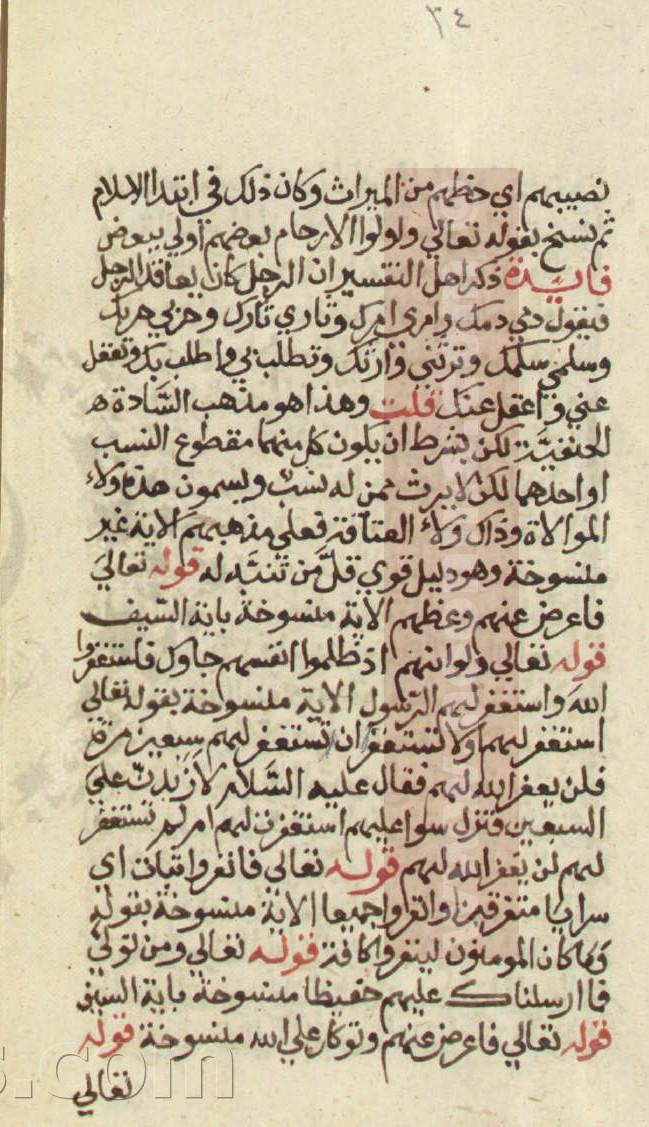 ٣٤
نصيبهم اي حظهم من الميراث وكان ذلك في ابتدا الاسلام
ثم نسخ بقوله تعالي واولوا الارحام بعضهم اولي ببعض
فايدة ذكر اهل التفسير ان الرجل كان يعاقد الرجل
فيقول دمي دمك وامري امرك وثاري ثارك وحربي حربك
وسلمي سلمك وترثني وارثك وتطلب بي واطلب بك وتعقل
عني واعقل عنك قلت وهذا هو مذهب السَّادة
الحنفيَّة لكن بشرط ان يكون كل منهما مقطوع النسب
او احدهما لكن لا يرث ممن له نسب ويسمون هذه ولاء
الموالاة وذاك ولاء العتاقة فعلي مذهبهم الاية غير
منسوخة وهو دليل قوي قلَّ من تنبَّه له قوله تعالي
فاعرض عنهم وعظهم الاية منسوخة باية السيف
قوله تعالي ولو انهم اذ ظلموا انفسهم جاوك فاستغفروا
الله واستغفر لهم الرسول الاية منسوخة بقوله تعالي
استغفر لهم اولا تستغفر ان تستغفر لهم سبعين مرة
فلن يغفر الله لهم فقال عليه السَّلام لازيدنّ علي
السبعين فنزل سوا عليهم استغفرت لهم ام لم تستغفر
لهم لن يغفر الله لهم قوله تعالي فانفروا ثبات اي
سرايا متفرقين او انفروا جميعا الاية منسوخة بقوله
وما كان المومنون لينفروا كافة قوله تعالي ومن تولي
فما ارسلناك عليهم حفيظا منسوخة باية السيف
قوله تعالي فاعرض عنهم وتوكل علي الله منسوخة قوله
تعالي
s.com